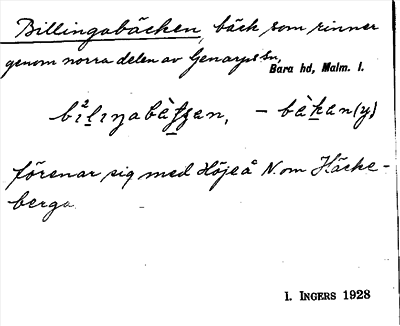 Billingabäcken, bäck som rinner
genom norra delen av Genarps sn,
Bara hd, Malm. l.
– bäkan (y)
förenar sig med Höjeå N. om Häcke-
berga
I. INGERS 1928